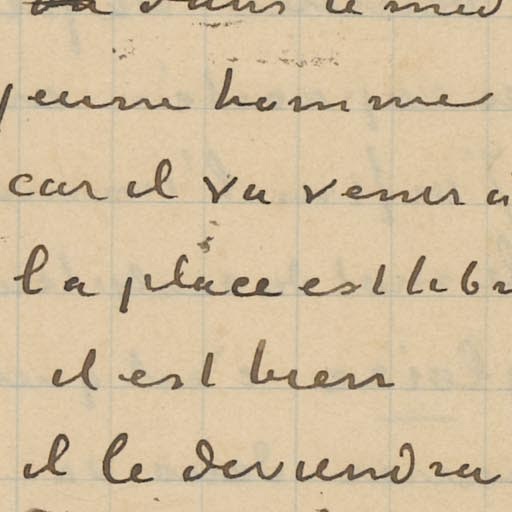 dans le
jeune homme
car il va venir
la place est
il est bien
il le deviendra